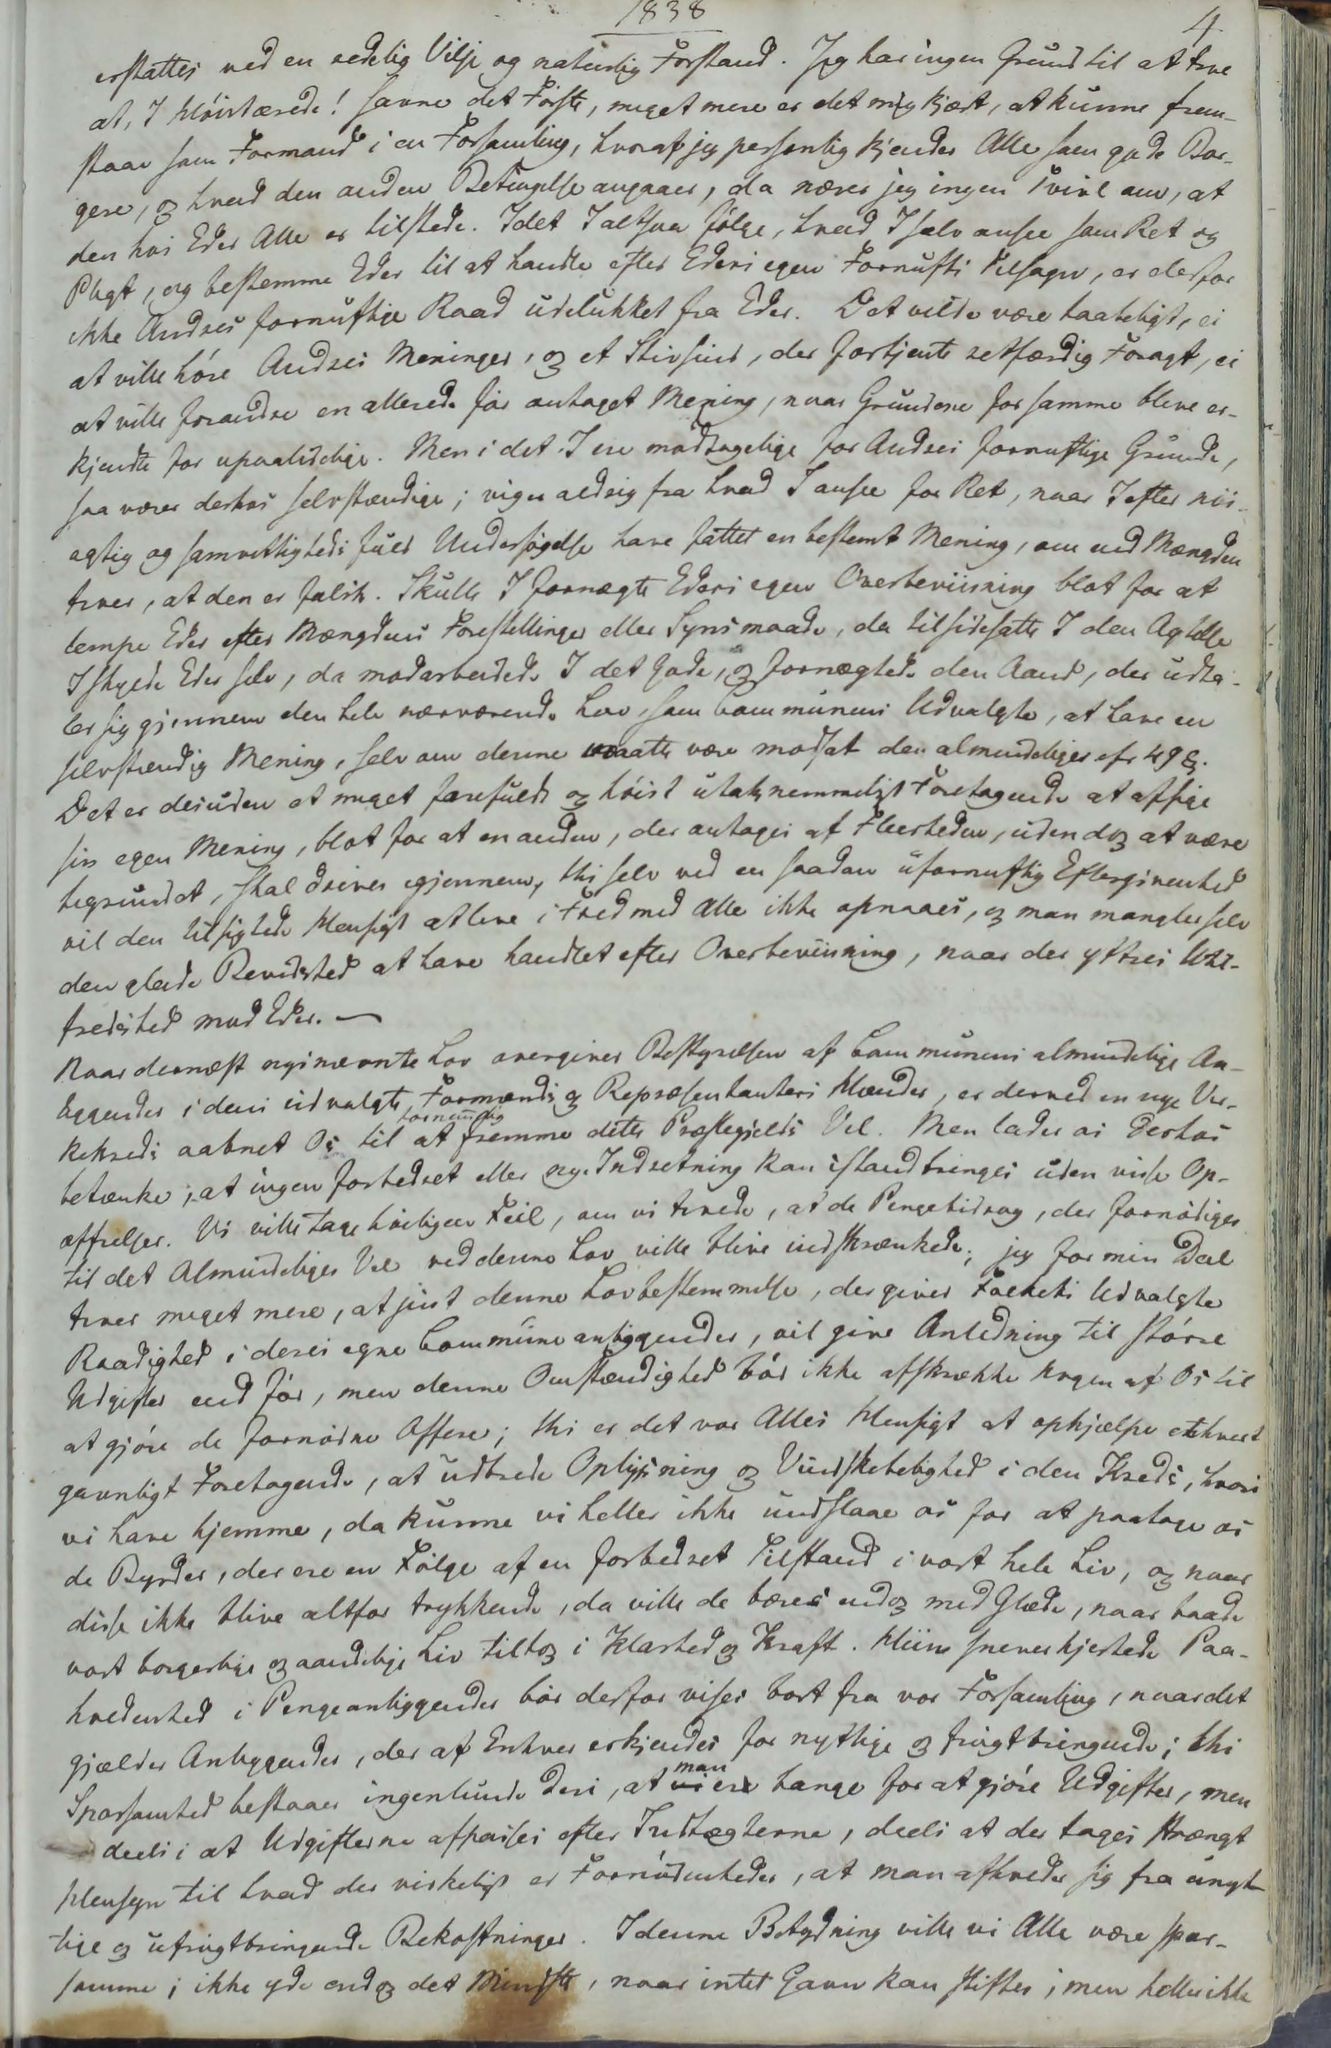 1838
4.
erstattes ved en redelig Vilje og naturlig Forstand. Jeg har ingen Grund til at troe
at, I Høistærede! savne det Første, meget mere er det mig kjært, at kunne frem-
staae som Formand i en Forsamling, hvoraf jeg personlig kjender Alle som gode Bor-
gere, og hvad den anden Betingelse angaaer, da nærer jeg ingen Tvivl om, at
den hos Eder Alle er tilstede. Idet I altsaa følge, hvad I selv ansee som Ret og
Pligt, og bestemme Eder til at handle efter Eders egen Fornufts Tilsagn, er derfor
ikke Andres fornuftige Raad udelukket fra Eder. Det vilde være taabeligt, ei
at ville høre Andres Meninger, og et Stivsind, der fortjente retfærdig Foragt, ei
at ville forandre en allerede før antaget Mening, naar Grundene for samme bleve er-
kjendte for upaalidelige. Men i det I ere modtagelige for Andres fornuftige Grunde,
saa værer derhos selvstændige; viger aldrig fra hvad I ansee for Ret, naar I efter nøi-
agtig og samvittighedsfuld Undersøgelse have fattet en bestemt Mening, om end Mængden
troer, at den er falsk. Skulle I fornægte Eders egen Overbeviisning blot for at
lempe Eder efter Mængdens Forestillinger eller Synsmaade, da tilsidesatte I den Agtelse
I skyede Eder selv, da modarbeidede I det Gode, og fornægtede den Aand, der udta-
ler sig gjennem den hele nærværende Lov, som Communens Udvalgte, at have en
selvstændig Mening, selv om denne maatte være modsat den almindelige cfr 49 §.
Det er desuden et meget farefuldt og høist utaknemmeligt Foretagende at opgive
sin egen Mening, blot for at en anden, der antages af Fleerheden, uden dog at være
begrundet, skal drives igjennem, thi selv ved en saadan ufornuftig Eftergivenhed
vil den tilsigtede Hensigt at leve i Fred med Alle ikke opnaaes, og man mangler selv
den glade Bevidsthed at have handlet efter Overbeviisning, naar der yttres Util-
fredshed mod Eder. —
Naar dernæst nysnævnte Lov overgiver Bestyrelsen af Communens almindelige An-
liggender i dens udvalgte Formænds og Repræsentanters Hænder, er derved en nye Vir-
kekreds aabnet Os til fornemmelig at fremme dette Præstegjelds Vel. Men lader os derhos
betænke, at ingen forbedret eller nye Indretning kan istandbringes uden visse Op-
offrelser. Vi ville tage høiligen Feil, om vi troede, at de Pengebidrag, der fornødiges
til det Almindeliges Vel ved denne Lov ville blive indskrænkede; jeg for min Deel
troer meget mere, at just denne Lovbestemmelse, der giver Folkets Udvalgte
Raadighed i deres egne Communeanliggender, vil give Anledning til større
Udgifter end før, men denne Omstændighed bør ikke afskrække nogen af Os til
at gjøre de fornødne Offere; thi er det vor Alles Hensigt at ophjælpe ethvert
gavnligt Foretagende, at udbrede Oplysning og Vindskibelighed i den Kreds, hvori
vi have hjemme, da kunne vi heller ikke undslaae os for at paatage os
de Byrder, der ere en Følge af en forbedret Tilstand i vort hele Liv, og naar
disse ikke blive altfor trykkende, da ville de bæres endog med Glæde, naar baade
vort borgerlige og aandelige Liv tiltog i Klarhed og Kraft. Hiin sneverhjertede Paa-
holdenhed i Pengeanliggender bør derfor vises bort fra vor Forsamling, naar det
gjælder Anliggender, der af Enhver erkjendes for nyttige og frugtbringende; thi
Sparsomhed bestaaer ingenlunde deri, at man er bange for at gjøre Udgifter, men
deels i at Udgifterne afpasses efter Indtægterne, deels at der tages strængt
Hensyn til hvad der virkeligt er Fornødenheder, at man afholder sig fra unyt-
tige og ufrugtbringende Bekostninger. I denne Betydning ville vi Alle være spar-
somme; ikke yde endog det Mindste, naar intet Gavn kan stiftes, men heller ikke